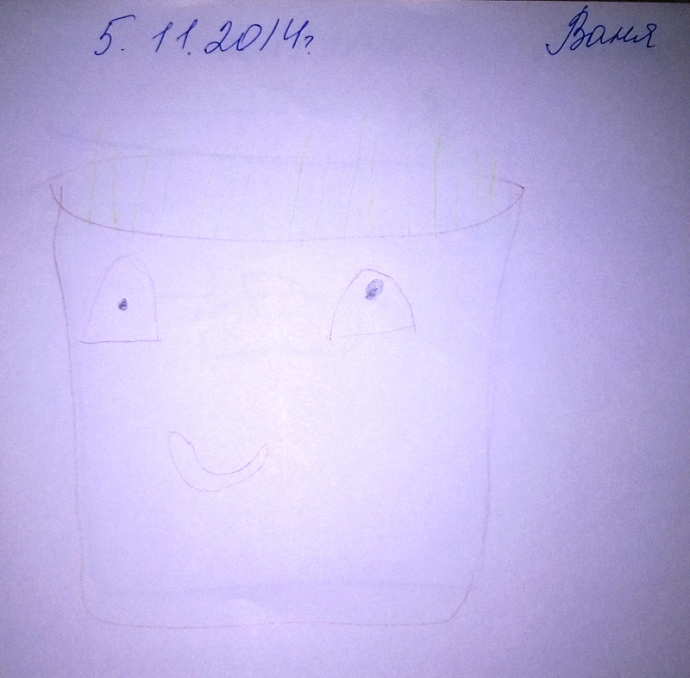 5.11.2014г. Ваня